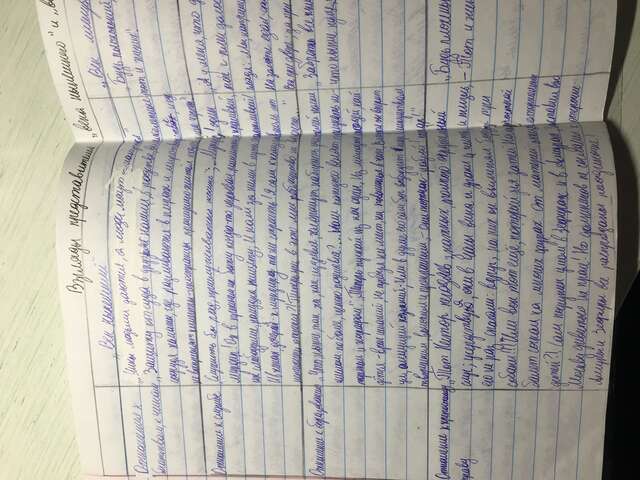 Взгляды представителей „века нынешнего" и „ве
„Век нынешний"
„Век минув
Отношение к
богатствам, к чинам
„Чины людьми даются, а люди могут обмануться"
„Защиту от суда в друзьях нашли, в родстве, великолепные
соорудя палаты, где разливаются в пирах и мотовстве, и где
не воскресят клиенты-иностранцы прошедшего житья подлые черты"
„Будь плохонький,
тот и жених!
Отношение к службе
„Служить бы рад, прислуживаться тошно"; „Мундир! один
мундир! Он в прежнем их быту когда-то укрывал, расшитый и красивый,
их слабодушие, рассудка нищету; И нам за ними в путь счастливый!
И в женах, дочерях к мундиру та же страсть! Я сам к нему давно ль от
нежности отрекся?! Теперь уж в это мне ребячество не впасть..."
„А у меня, что
Отношение к образованию
„Что нынче так же, как издревле, хлопочут набирать учителей полки,
числом поболее, ценою подешевле?... Нам каждого велят признать ис-
ториком и географом" „Теперь пускай из нас один, Из молодых людей, най-
дётся - враг исканий, не требуя ни мест, ни повышенья в чин, В науки он вперит
ум, алчущий познаний; Или в душе его сам бог возбудит жар к искусствам
творческим, высоким и прекрасным, - Они тотчас: разбой! пожар!"
„Забрать все кн
что нынче пуще,
Отношение к крепостному
праву
„Тот Нестор негодяев знатных, толпою окруженный
слуг; усердствуя, они в часы вина и драки и честь и жизнь
его не раз спасали: вдруг, на них он выменил борзые три
собаки!!! „Или вон тот ещё, который для затей На крепостной
балет согнал на многих фурах От матерей, отцов отторженных
детей?! Сам погружен умом в Зефирах и в Амурах, Заставил всю
Москву дивиться их красе! Но должников не согласил к отсрочке:
Амуры и Зефиры все распроданы поодиночке!
„Будь плохоньк
- Тот и жен